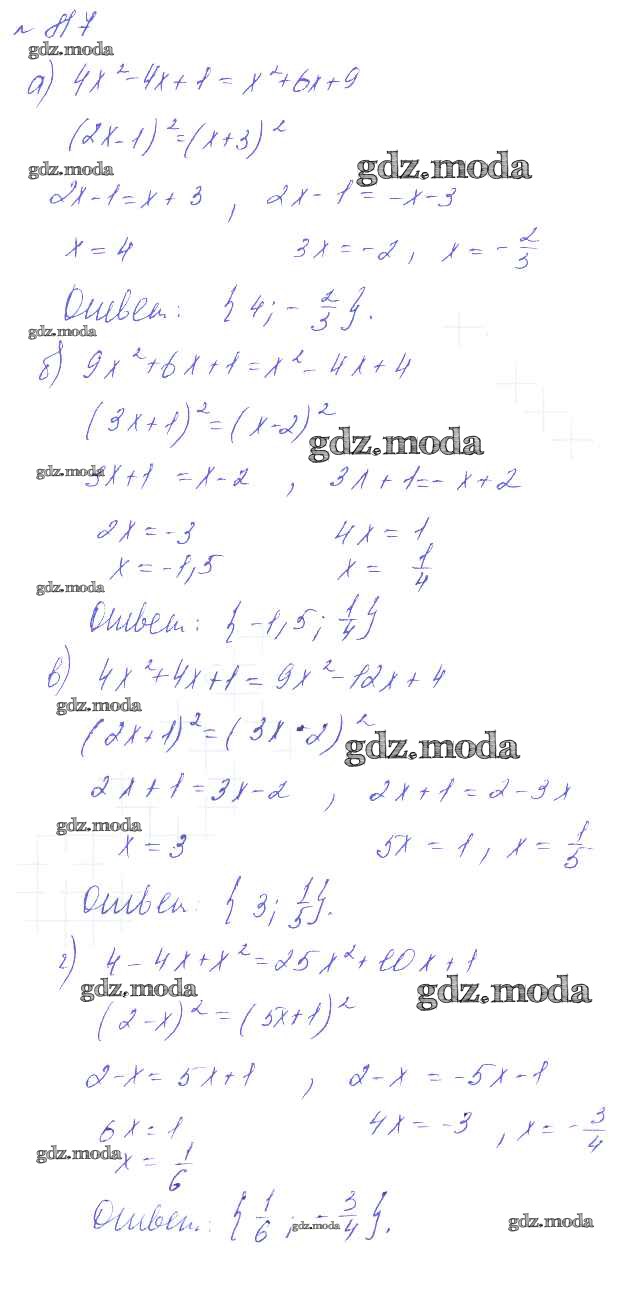 № 817
gdz.moda
а) 4x² - 4x + 1 = x² + 6x + 9
(2x - 1)² = (x + 3)²
gdz.moda
gdz.moda
2x - 1 = x + 3 , 2x - 1 = -x - 3
x = 4 3x = -2 , x = -2/3
Ответ: {4; -2/3}.
gdz.moda
б) 9x² + 6x + 1 = x² - 4x + 4
(3x + 1)² = (x - 2)²
gdz.moda
gdz.moda
3x + 1 = x - 2 , 3x + 1 = -x + 2
2x = -3 4x = 1
x = -1,5 x = 1/4
gdz.moda
Ответ: {-1,5; 1/4}
в) 4x² + 4x + 1 = 9x² - 12x + 4
gdz.moda
(2x + 1)² = (3x - 2)²
gdz.moda
2x + 1 = 3x - 2 , 2x + 1 = 2 - 3x
gdz.moda
x = 3 5x = 1 , x = 1/5
Ответ: {3; 1/5}.
г) 4 - 4x + x² = 25x² + 10x + 1
gdz.moda
gdz.moda
(2 - x)² = (5x + 1)²
2 - x = 5x + 1 , 2 - x = -5x - 1
6x = 1 4x = -3 , x = -3/4
gdz.moda
x = 1/6
Ответ: {1/6; -3/4}.
gdz.moda
gdz.moda